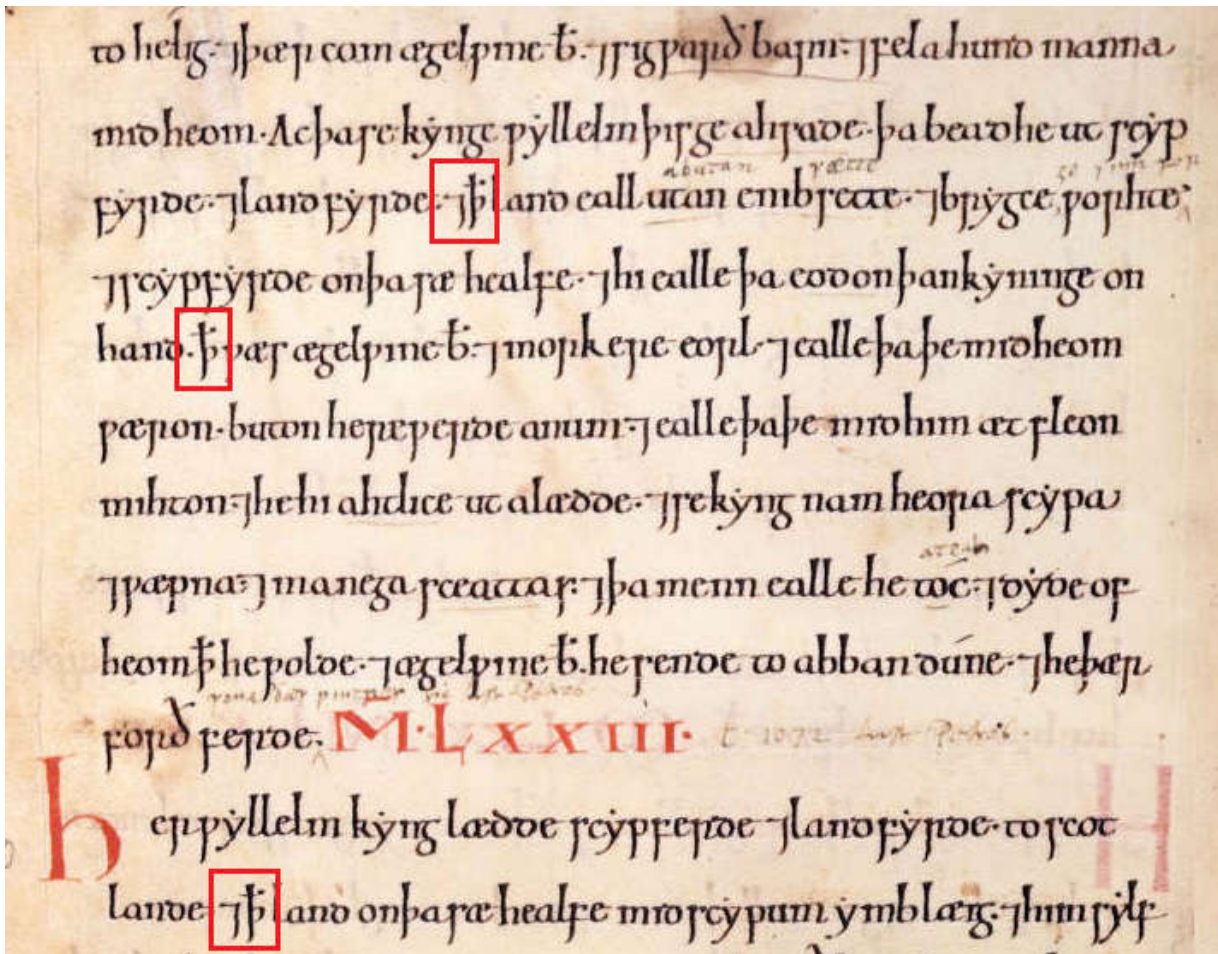 to helig. ⁊ þær com ægelƿine b̄. ⁊ sigƿarð bærn. ⁊ fela hund manna
mid heom. Ac þa se kyng ƿyllelm þis geahsade. þa bead he ut scyp
abutan sætte
fyrde. ⁊ land fyrde. ⁊ ꝥ land eall utan embsette. ⁊ brygce ƿorhte
⁊ scypfyrde on þa sæ healfe. ⁊ hi ealle þa eodon þan kyninge on
hand. ꝥ ƿæs ægelƿine b̄. ⁊ morkere eorl. ⁊ ealle þa þe mid heom
ƿæron. buton hereƿerde anum. ⁊ ealle þa þe mid him æt fleon
mihton. ⁊ he hi ahtlice ut alædde. ⁊ se kyng nam heora scypa
ateah
⁊ ƿæpna. ⁊ manega sceattas. ⁊ þa menn ealle he toc. ⁊ dyde of
heom ꝥ he ƿolde. ⁊ ægelƿine b̄. he sende to abbandúne. ⁊ he þær
forð ferde. M.LXXIII.
her ƿyllelm kyng lædde scypferde ⁊ landfyrde. to scot
lande ⁊ ꝥ land on þa sæ healfe mid scypum ymblæg. ⁊ him sylf